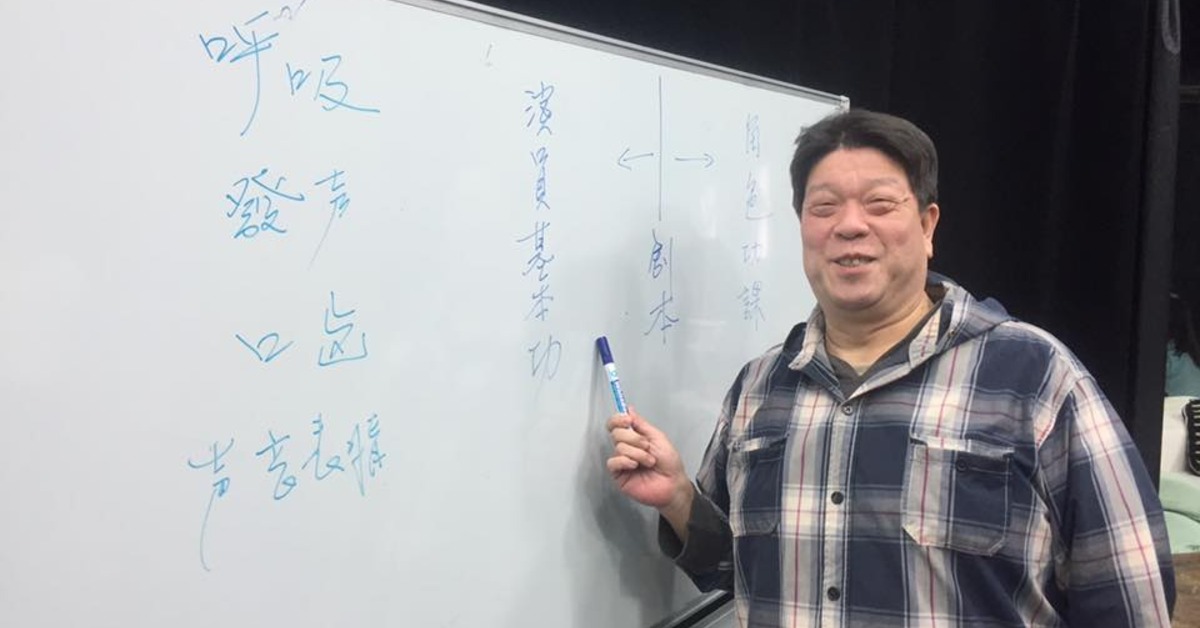 呼吸
發声
口齿
声音表情
演員基本功
← | →
劇本
角色功課